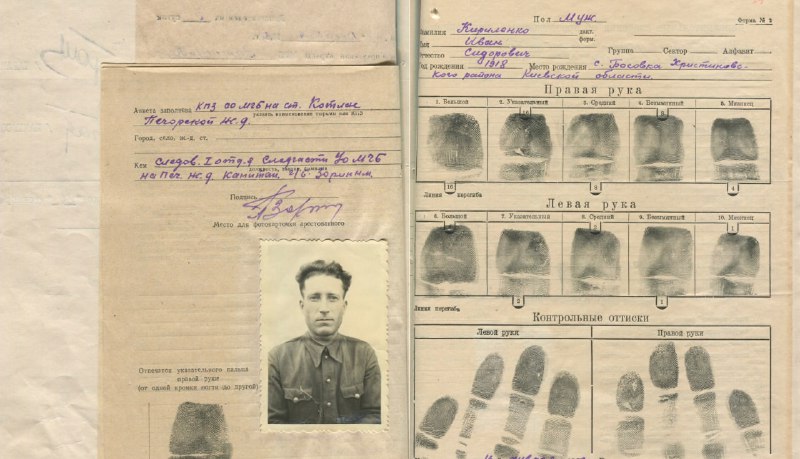 Анкета заполнена КПЗ ОО МГБ на ст. Котлас
указать наименование тюрьмы или КПЗ
Печорской ж.д.
Город, село, ж.-д. ст.
Кем следов. I отд. Следчасти УО МГБ
должность, звание, фамилия
на Печ. ж.д. Капитан Г/б. Зориным
Подпись
Место для фотокарточки арестованного
Отпечаток указательного пальца
правой руки
(от одной кромки ногтя до другой)
Пол Муж
Форма № 2
Фамилия Кириленко
дакт.
форм.
Имя Иван
Отчество Сидорович
Группа Сектор Алфавит
Год рождения 1918 Место рождения с. Босовка Христиновс-
кого района Киевской области.
Правая рука
1. Большой 2. Указательный 3. Средний 4. Безымянный 5. Мизинец
16 8
Линия перегиба 16 8 4
Левая рука
6. Большой 7. Указательный 8. Средний 9. Безымянный 10. Мизинец
4 2 1
Линия перегиба 2 1
Контрольные оттиски
Левой руки Правой руки